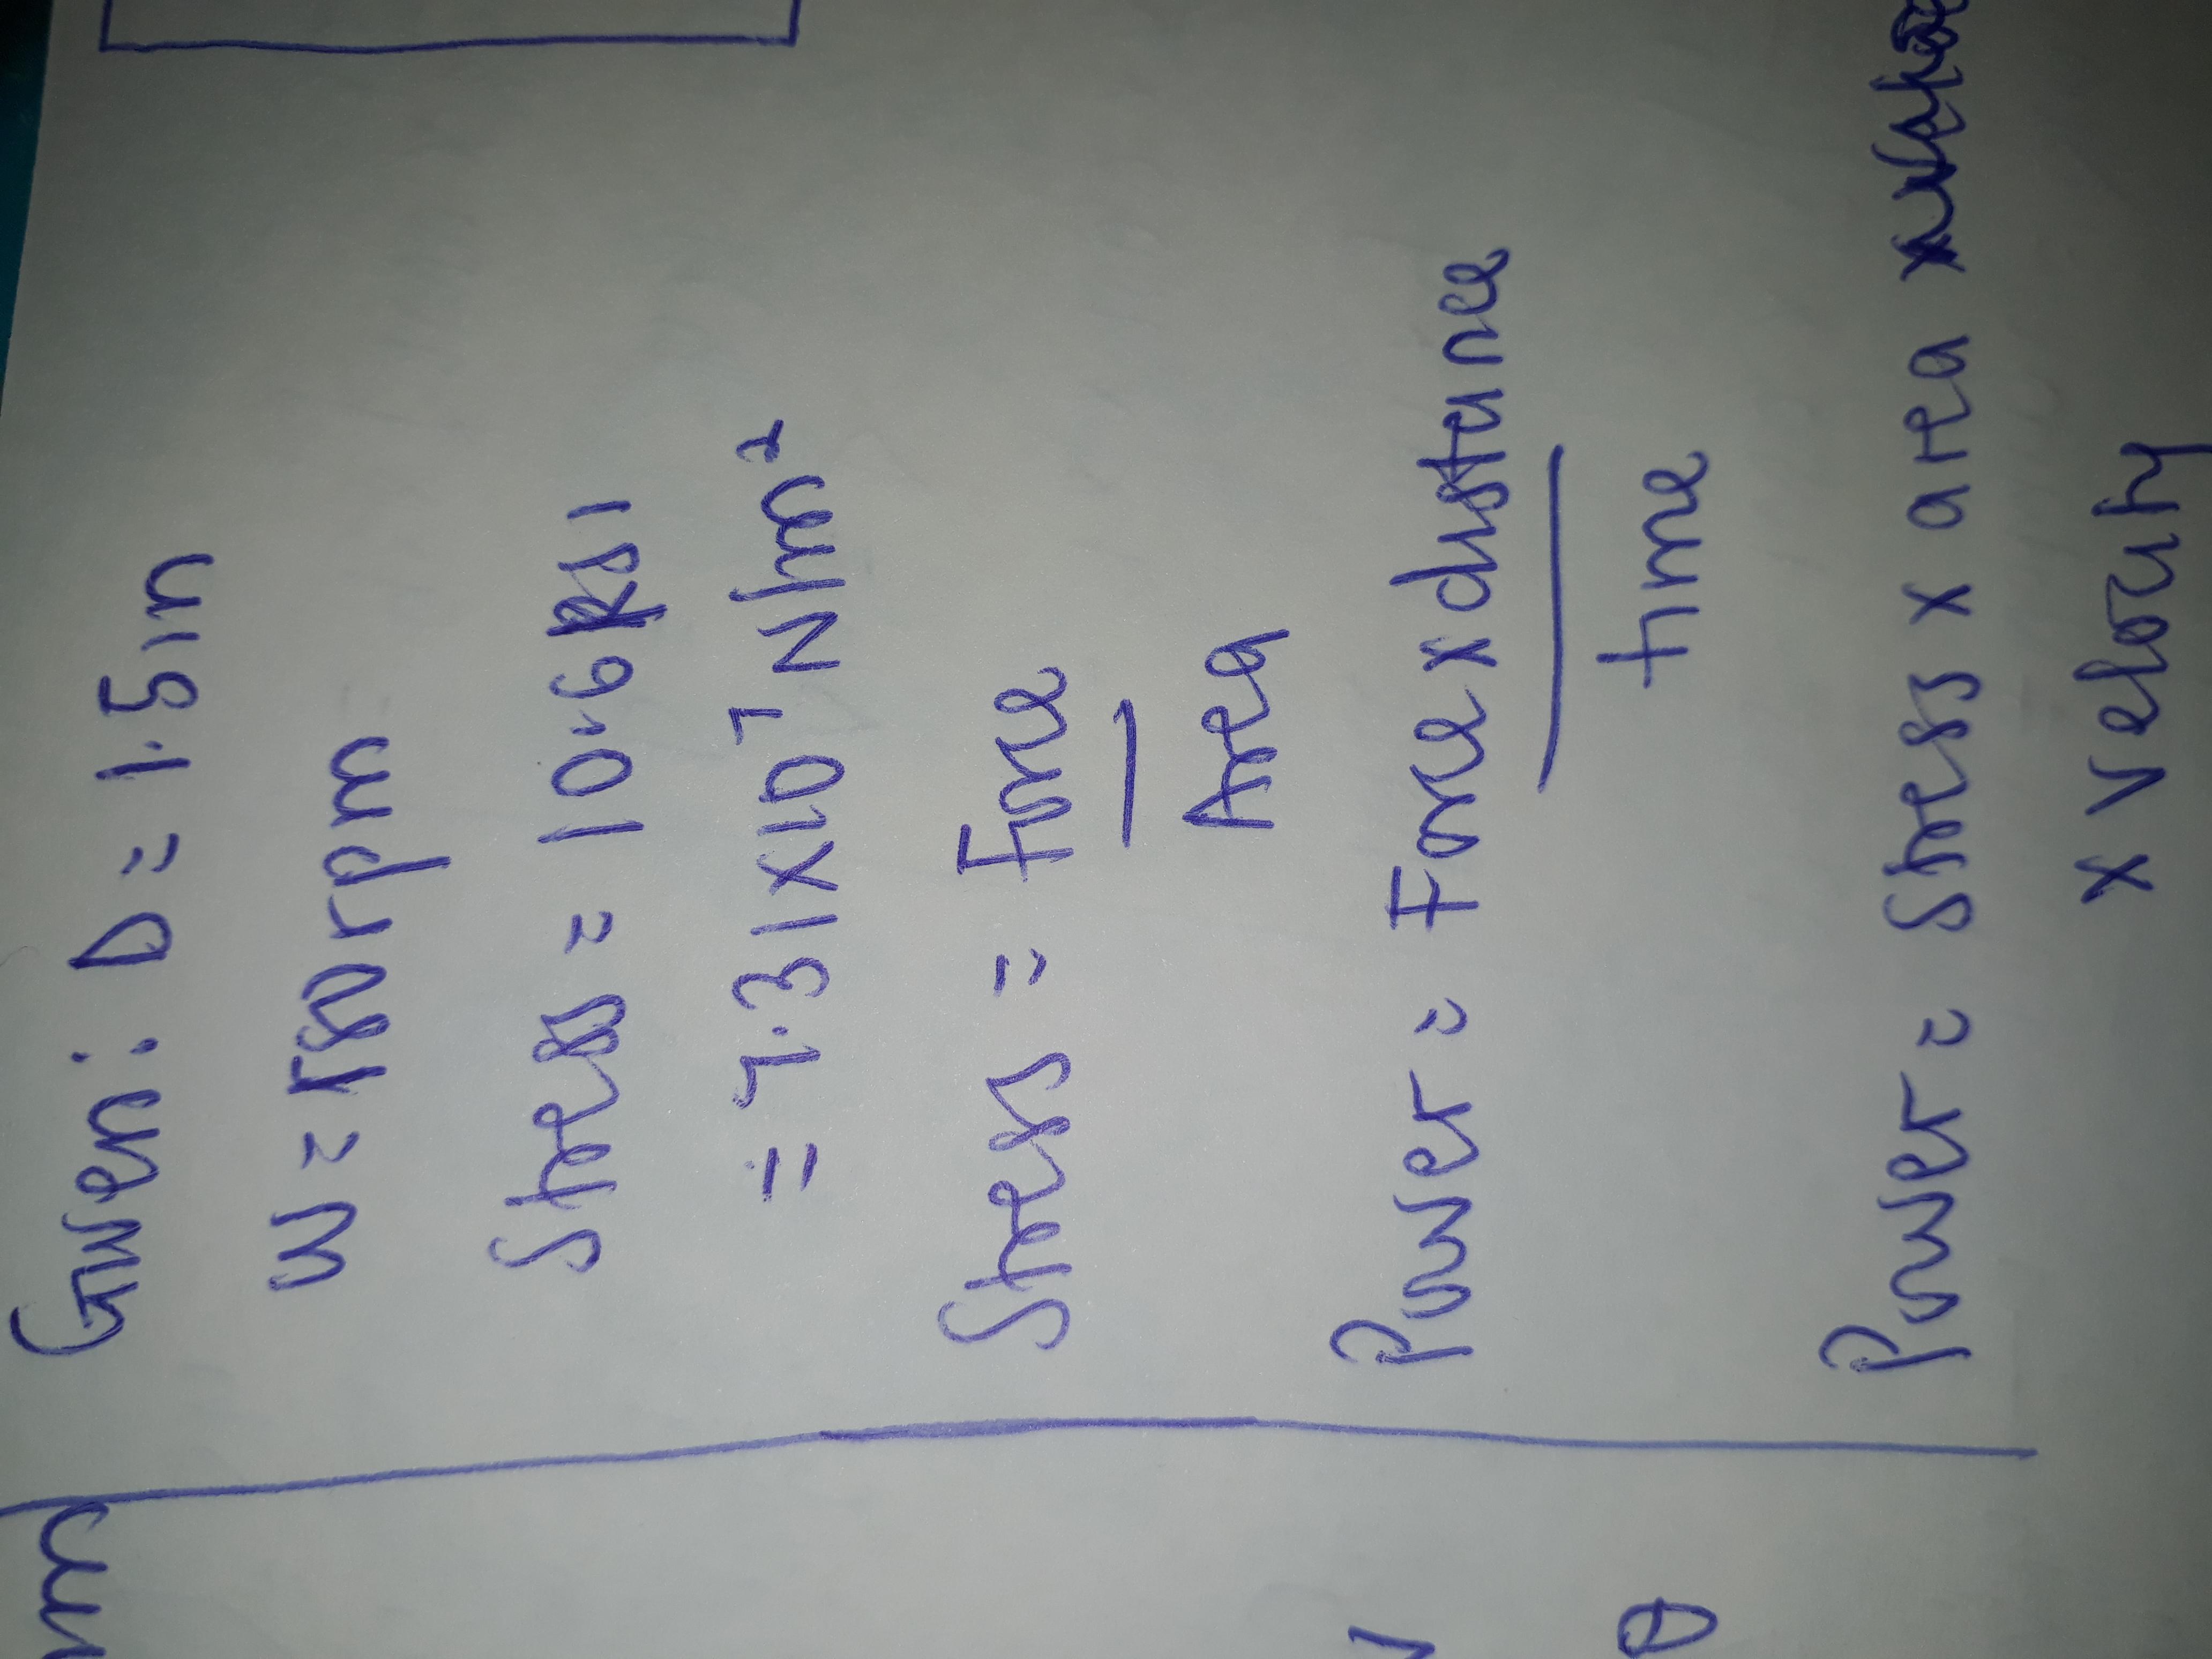 Given: D = 1.5in
W = 750rpm
Stress = 10.6 ksi
= 7.31x10⁷ N/m²
Stress = Force
Area
Power = Force x distance
time
Power = Stress x area x
x velocity
m
θ